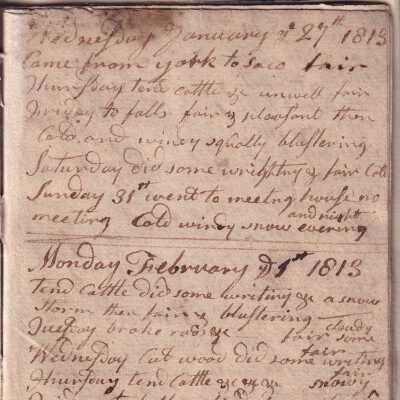 Wednesday January ye 27th 1813
Came from york to Saco fair
Thursday tend cattle &c unwell fair
Friday to falls fair & pleasant then
Cold and windy squally blustering
Saturday did some wrighting & fair Cold
Sunday 31st went to meeting house no
meeting Cold windy snow evening
and night
Monday February ye 1st 1813
tend Cattle did some writing &c a snow
storm then fair & blustering
Tuesday broke roads &c fair some
cloudy
Wednesday Cut wood did some writing
fair
Thursday tend Cattle &c &c &c
fair
snowy